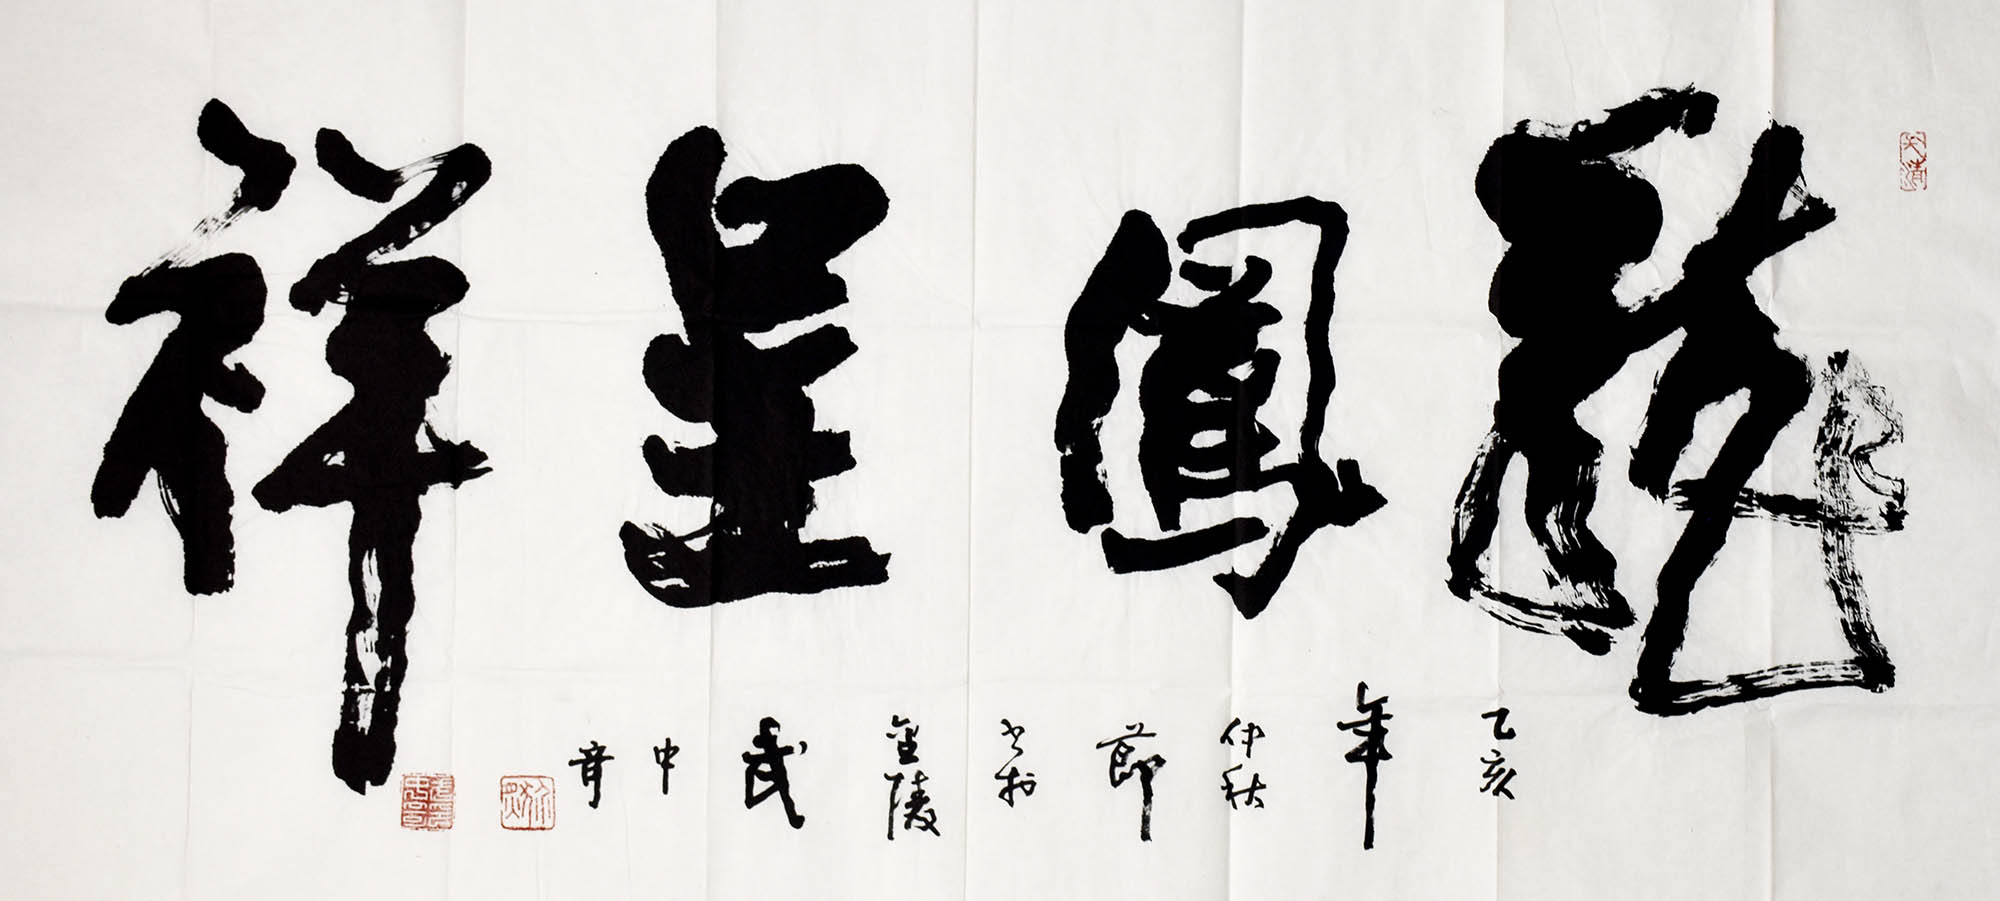 龍鳳呈祥
乙亥年仲秋節書於金陵武中奇